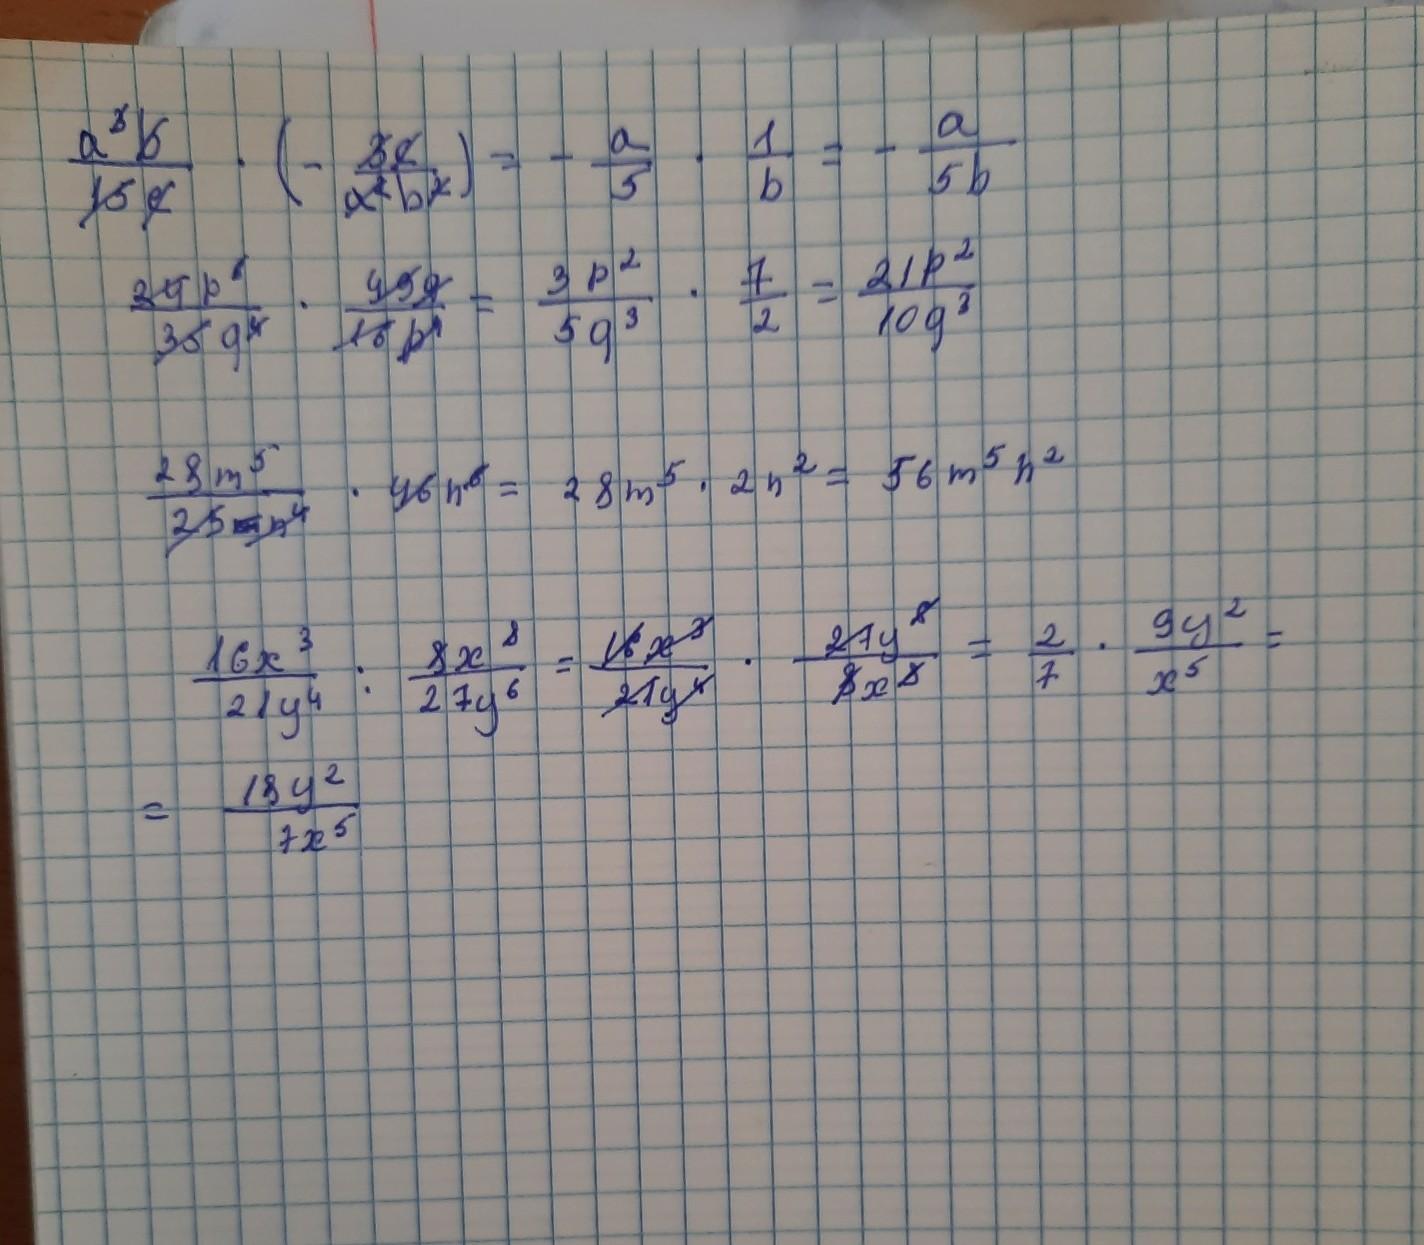 a³b/15c · (- 3c/a²b²) = - a/5 · 1/b = - a/5b
p⁶/35q⁴ · 45q/p⁴ = 3p²/5q³ · 7/2 = 21p²/10q³
28m⁵/n⁴ · 46n⁶ = 28m⁵ · 2n² = 56m⁵n²
16x³/21y⁴ : 8x⁸/27y⁶ = 16x³/21y⁴ · 27y⁸/8x⁸ = 2/7 · 9y²/x⁵ =
= 18y²/7x⁵